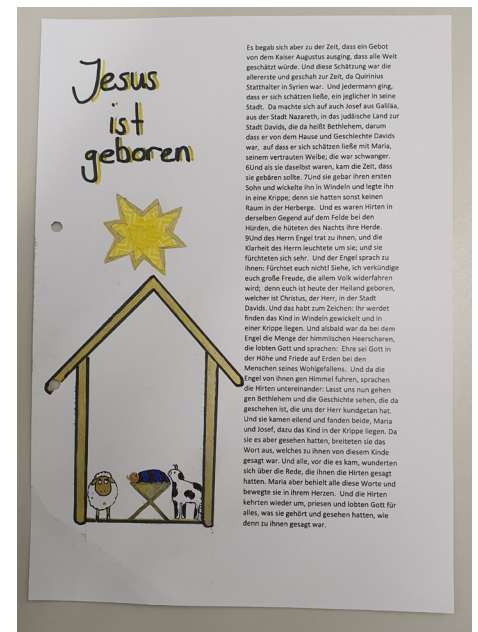 Jesus
ist
geboren
Es begab sich aber zu der Zeit, dass ein Gebot
von dem Kaiser Augustus ausging, dass alle Welt
geschätzt würde. Und diese Schätzung war die
allererste und geschah zur Zeit, da Quirinius
Statthalter in Syrien war. Und jedermann ging,
dass er sich schätzen ließe, ein jeglicher in seine
Stadt. Da machte sich auf auch Josef aus Galiläa,
aus der Stadt Nazareth, in das judäische Land zur
Stadt Davids, die da heißt Bethlehem, darum
dass er von dem Hause und Geschlechte Davids
war, auf dass er sich schätzen ließe mit Maria,
seinem vertrauten Weibe; die war schwanger.
6Und als sie daselbst waren, kam die Zeit, dass
sie gebären sollte. 7Und sie gebar ihren ersten
Sohn und wickelte ihn in Windeln und legte ihn
in eine Krippe; denn sie hatten sonst keinen
Raum in der Herberge. Und es waren Hirten in
derselben Gegend auf dem Felde bei den
Hürden, die hüteten des Nachts ihre Herde.
9Und des Herrn Engel trat zu ihnen, und die
Klarheit des Herrn leuchtete um sie; und sie
fürchteten sich sehr. Und der Engel sprach zu
ihnen: Fürchtet euch nicht! Siehe, ich verkündige
euch große Freude, die allem Volk widerfahren
wird; denn euch ist heute der Heiland geboren,
welcher ist Christus, der Herr, in der Stadt
Davids. Und das habt zum Zeichen: Ihr werdet
finden das Kind in Windeln gewickelt und in
einer Krippe liegen. Und alsbald war da bei dem
Engel die Menge der himmlischen Heerscharen,
die lobten Gott und sprachen: Ehre sei Gott in
der Höhe und Friede auf Erden bei den
Menschen seines Wohlgefallens. Und da die
Engel von ihnen gen Himmel fuhren, sprachen
die Hirten untereinander: Lasst uns nun gehen
gen Bethlehem und die Geschichte sehen, die da
geschehen ist, die uns der Herr kundgetan hat.
Und sie kamen eilend und fanden beide, Maria
und Josef, dazu das Kind in der Krippe liegen. Da
sie es aber gesehen hatten, breiteten sie das
Wort aus, welches zu ihnen von diesem Kinde
gesagt war. Und alle, vor die es kam, wunderten
sich über die Rede, die ihnen die Hirten gesagt
hatten. Maria aber behielt alle diese Worte und
bewegte sie in ihrem Herzen. Und die Hirten
kehrten wieder um, priesen und lobten Gott für
alles, was sie gehört und gesehen hatten, wie
denn zu ihnen gesagt war.